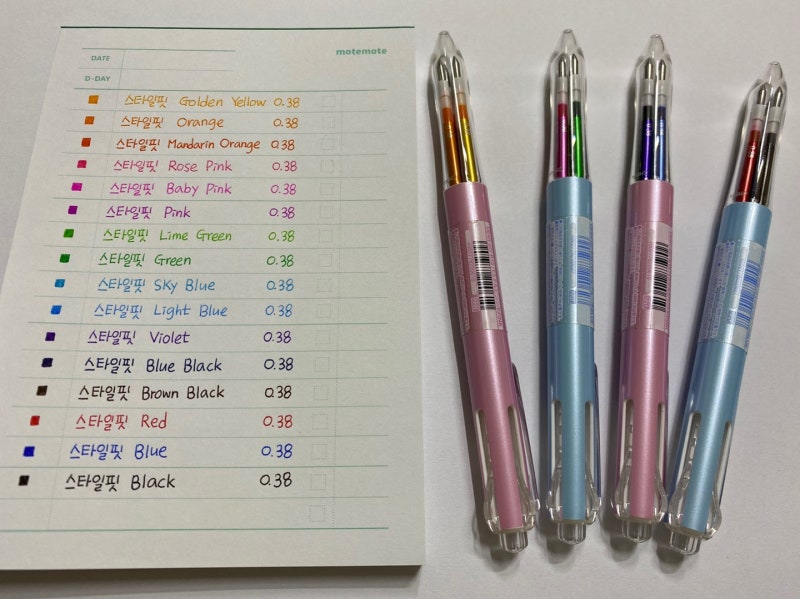 motemote
DATE
D-DAY
스타일핏 Golden Yellow 0.38
스타일핏 Orange 0.38
스타일핏 Mandarin Orange 0.38
스타일핏 Rose Pink 0.38
스타일핏 Baby Pink 0.38
스타일핏 Pink 0.38
스타일핏 Lime Green 0.38
스타일핏 Green 0.38
스타일핏 Sky Blue 0.38
스타일핏 Light Blue 0.38
스타일핏 Violet 0.38
스타일핏 Blue Black 0.38
스타일핏 Brown Black 0.38
스타일핏 Red 0.38
스타일핏 Blue 0.38
스타일핏 Black 0.38